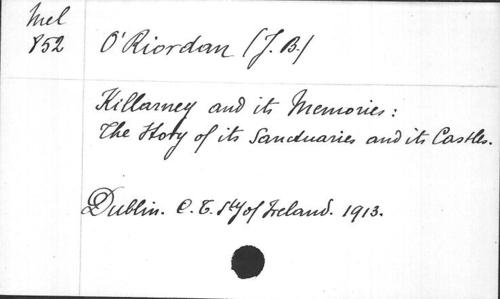 Irel
852
O'Riordan (J. B.)
Killarney and its Memories:
The Story of its Sanctuaries and its Castles.
Dublin. C. T. Sty of Ireland. 1913.